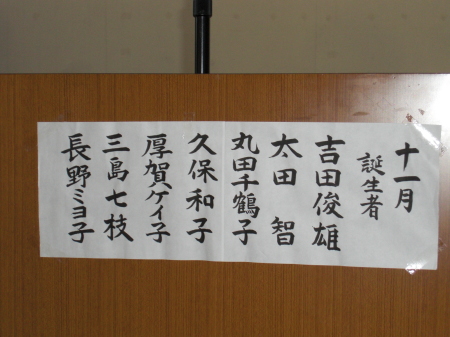 十一月
誕生者
吉田俊雄
太田智
丸田千鶴子
久保和子
厚賀ケイ子
三島七枝
長野ミヨ子